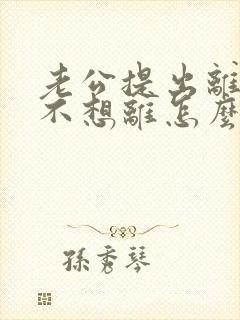 老公提出離
不想離怎麼
孫秀琴